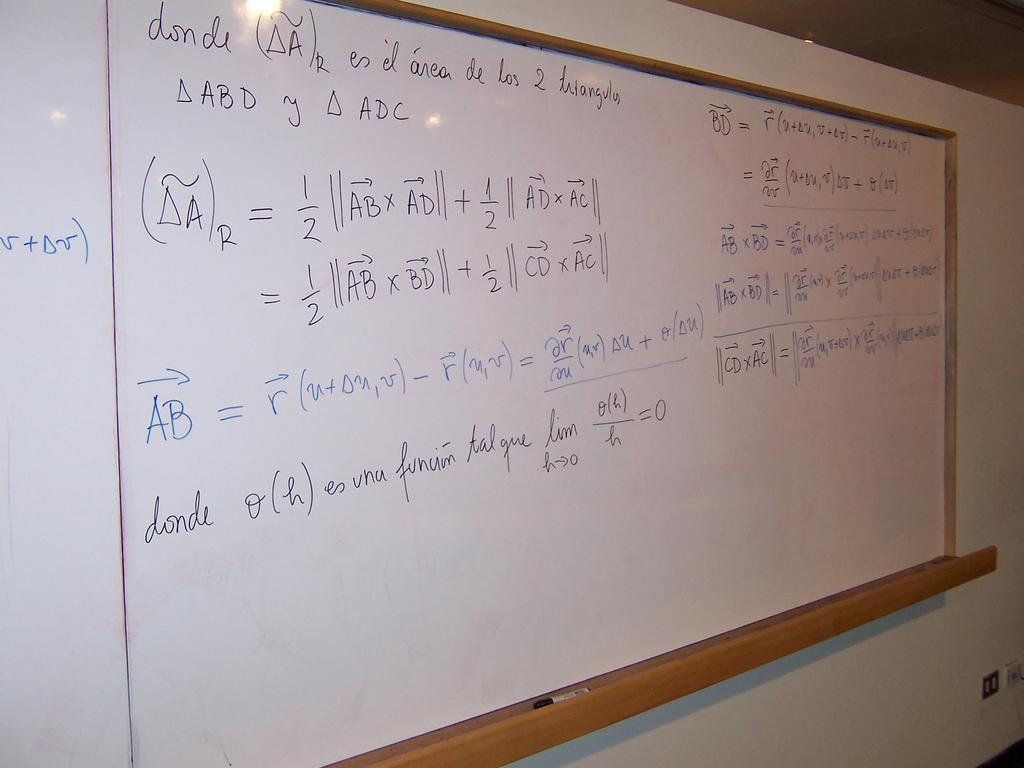 v+Δv)
donde (Δ̃A)_R es el área de los 2 triangulos
Δ ABD y Δ ADC
(Δ̃A)_R = 1/2 ||AB⃗ × AD⃗|| + 1/2 ||AD⃗ × AC⃗||
= 1/2 ||AB⃗ × BD⃗|| + 1/2 ||CD⃗ × AC⃗||
AB⃗ = r⃗(u+Δu,v) − r⃗(u,v) = ∂r⃗/∂u (u,v) Δu + σ(Δu)
donde σ(h) es una función tal que lim h→0 σ(h)/h = 0
BD⃗ = r⃗(u+Δu, v+Δv) − r⃗(u+Δu,v)
= ∂r⃗/∂v (u+Δu,v) Δv + σ(Δv)
AB⃗ × BD⃗ = ∂r⃗/∂u (u,v) × ∂r⃗/∂v (u+Δu,v) ΔuΔv + σ(ΔuΔv)
||AB⃗ × BD⃗|| = ||∂r⃗/∂u (u,v) × ∂r⃗/∂v (u+Δu,v)|| ΔuΔv + σ(ΔuΔv)
||CD⃗ × AC⃗|| = ||∂r⃗/∂u (u,v+Δv) × ∂r⃗/∂v (u,v)|| ΔuΔv + σ(ΔuΔv)